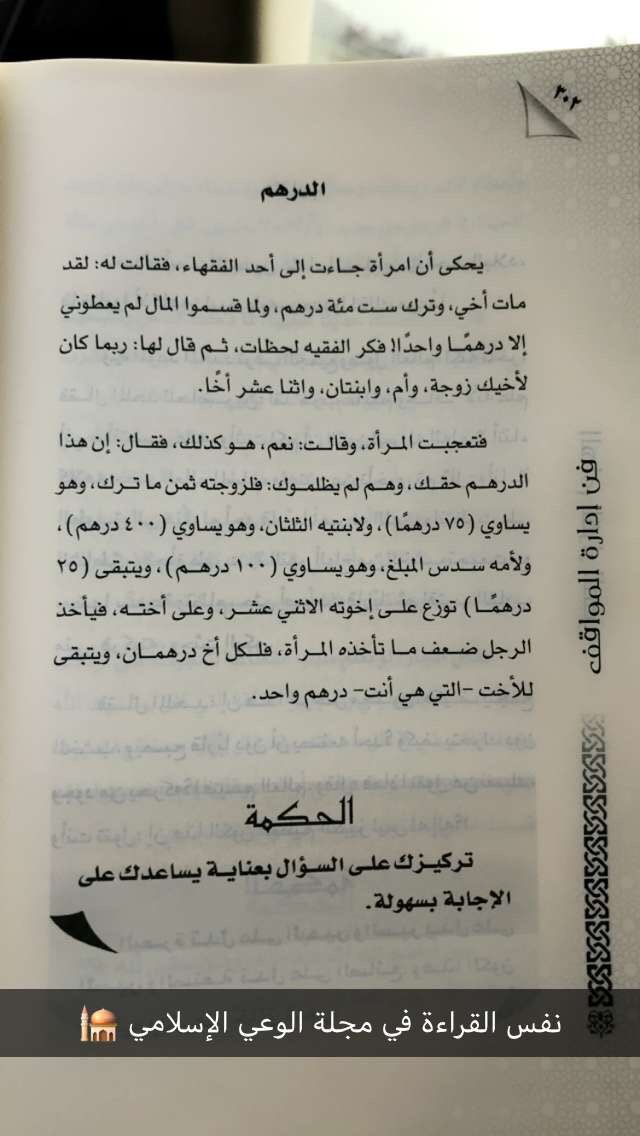 ٣٠٢
الدرهم
يحكى أن امرأة جاءت إلى أحد الفقهاء، فقالت له: لقد
مات أخي، وترك ست مئة درهم، ولما قسموا المال لم يعطوني
إلا درهمًا واحدًا! فكر الفقيه لحظات، ثم قال لها: ربما كان
لأخيك زوجة، وأم، وابنتان، واثنا عشر أخًا.
فتعجبت المرأة، وقالت: نعم، هو كذلك، فقال: إن هذا
الدرهم حقك، وهم لم يظلموك: فلزوجته ثمن ما ترك، وهو
يساوي (٧٥ درهمًا)، ولابنتيه الثلثان، وهو يساوي (٤٠٠ درهم)،
ولأمه سدس المبلغ، وهو يساوي (١٠٠ درهم)، ويتبقى (٢٥
درهمًا) توزع على إخوته الاثني عشر، وعلى أخته، فيأخذ
الرجل ضعف ما تأخذه المرأة، فلكل أخ درهمان، ويتبقى
للأخت -التي هي أنت- درهم واحد.
الحكمة
تركيزك على السؤال بعناية يساعدك على
الإجابة بسهولة.
فن إدارة المواقف
نفس القراءة في مجلة الوعي الإسلامي 🕌